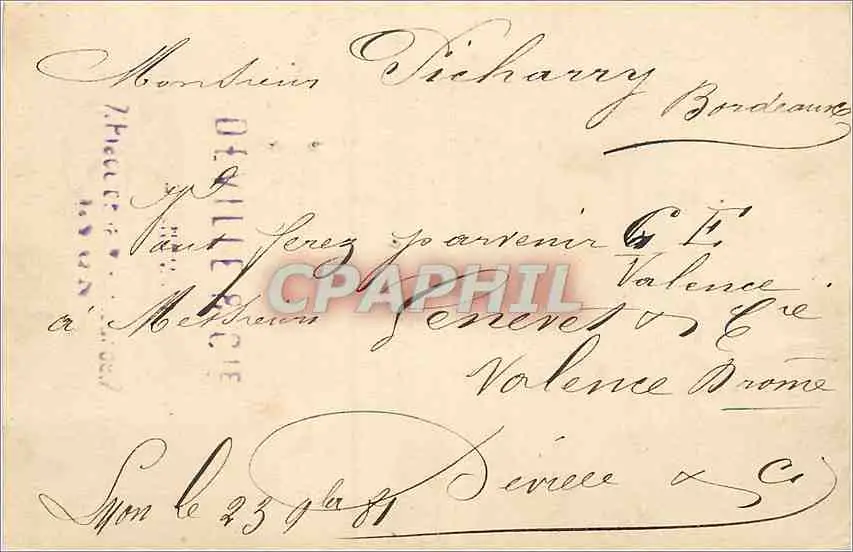 Monsieur Picharry
Bordeaux
Vous ferez parvenir G E
Valence
à Messieurs Genevet & Cie
Valence Drôme
Lyon le 23 9bre 81 Déville & C
DEVILLE & CIE
LYON
CPAPHIL